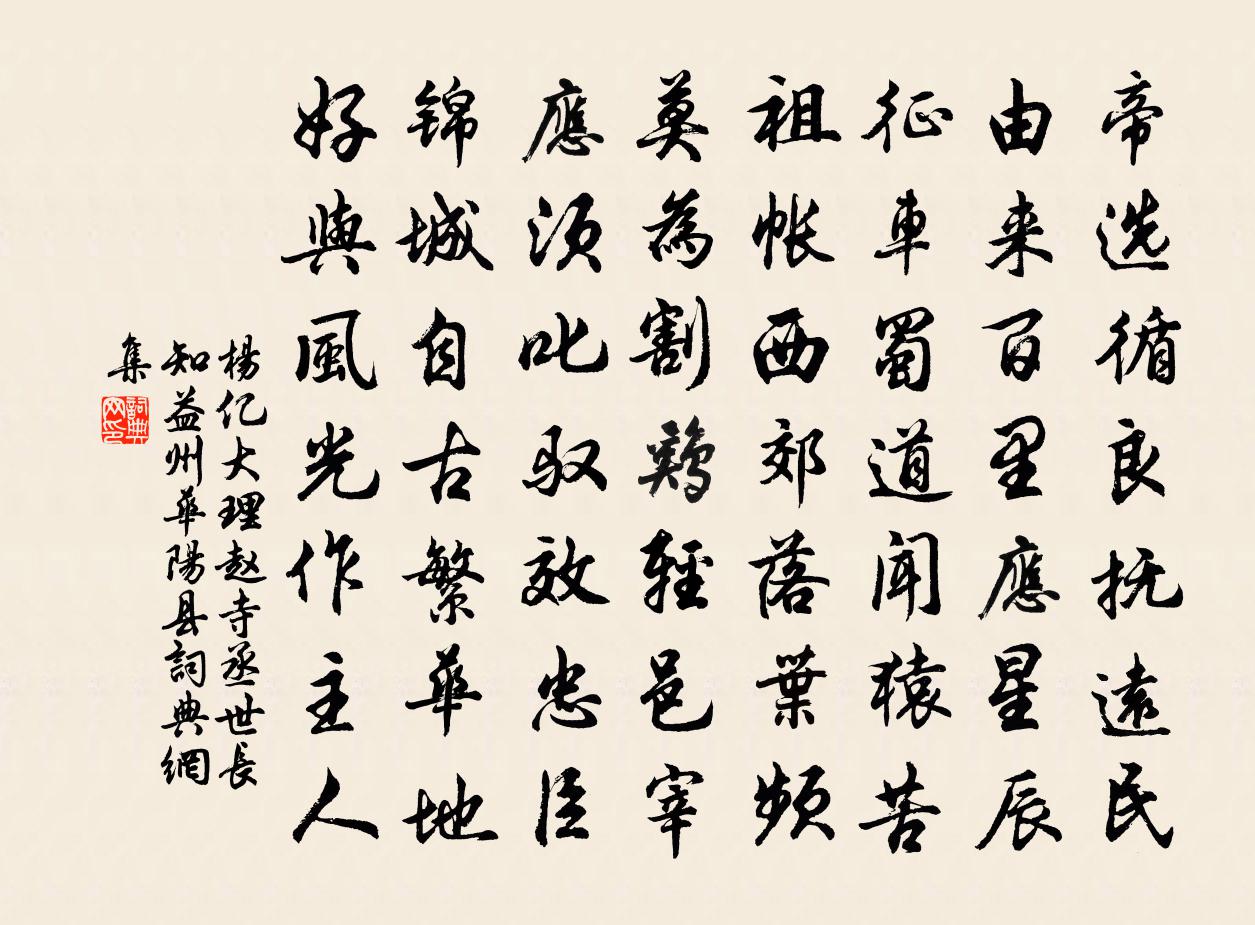 帝选循良抚遠民
由来百里應星辰
征車蜀道聞猿苦
祖帐西郊落葉频
莫為割鷄輕邑宰
應须叱驭效忠臣
锦城自古繁華地
好與風光作主人
楊亿大理赵寺丞世長
知益州華陽县詞典網
集
詞典网印